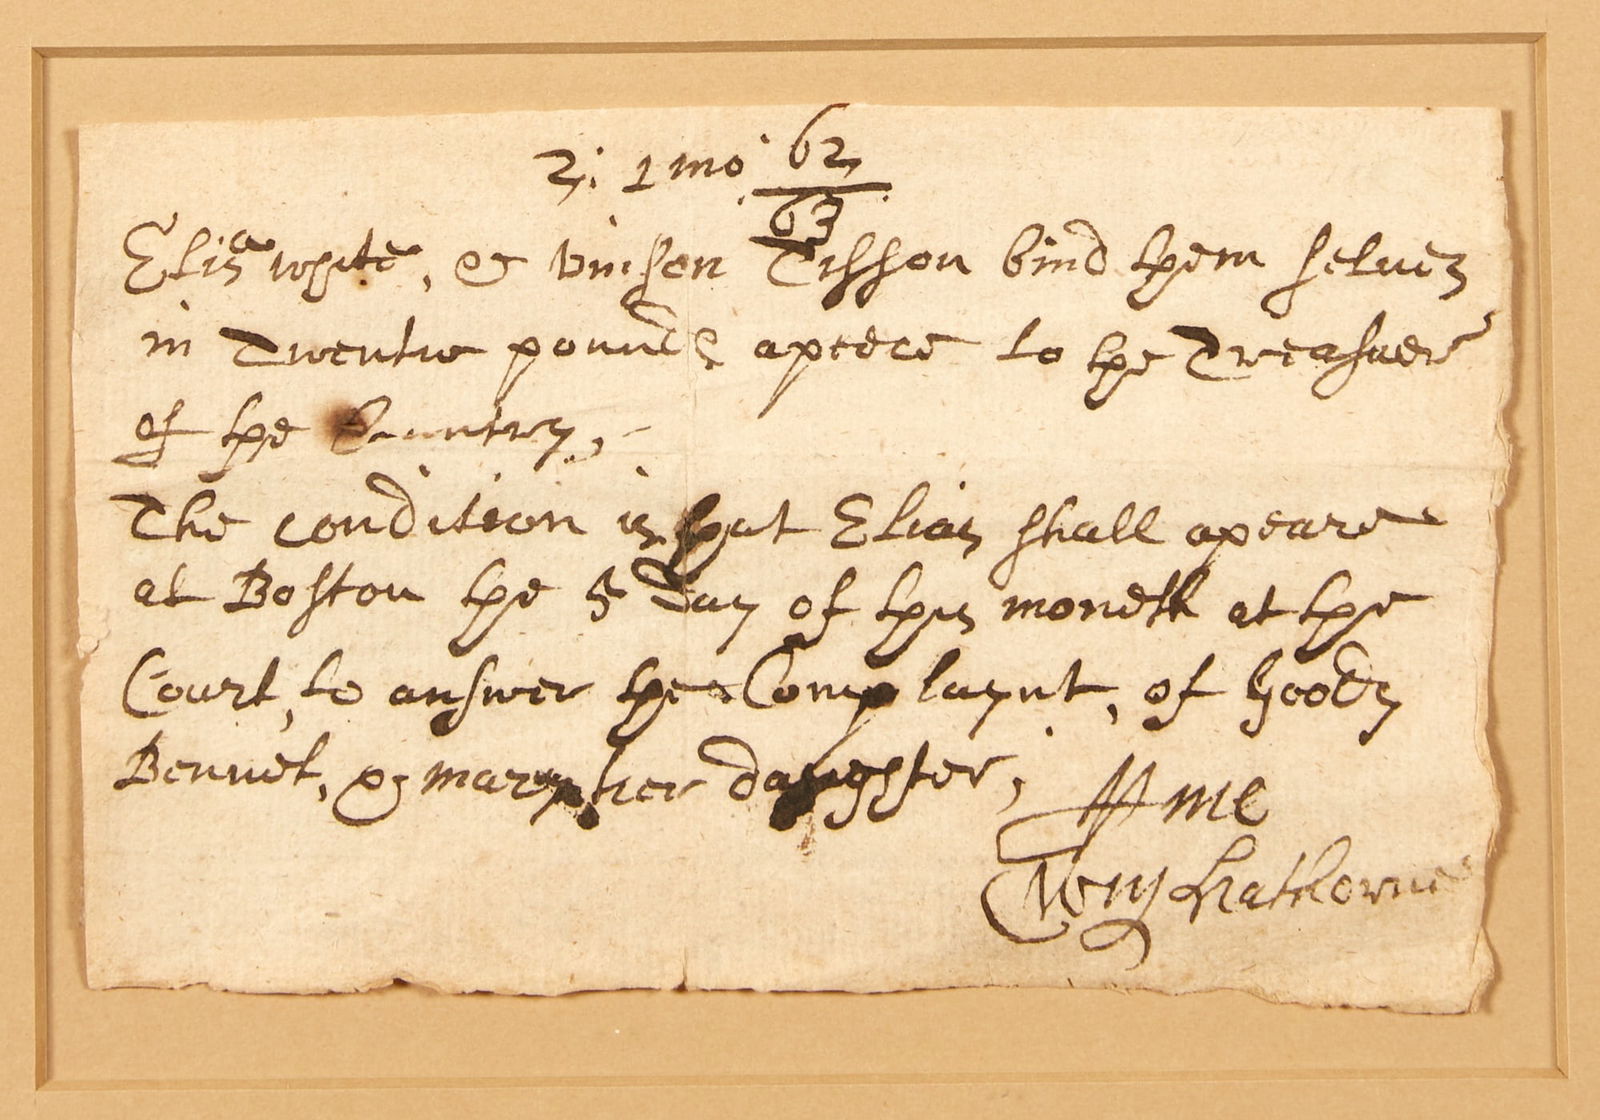 2: 1 mo 62
63
Elias white, & vinson Tisson bind them selues
in Twentie pounds apeece to the Treasuer
of the Countrey,
The condition is that Elias shall apeare
at Boston the 5 day of this moneth at the
Court, to answer the Complaynt, of Goody
Bennet, & mary her daughter,
p me
Wm Hathorne